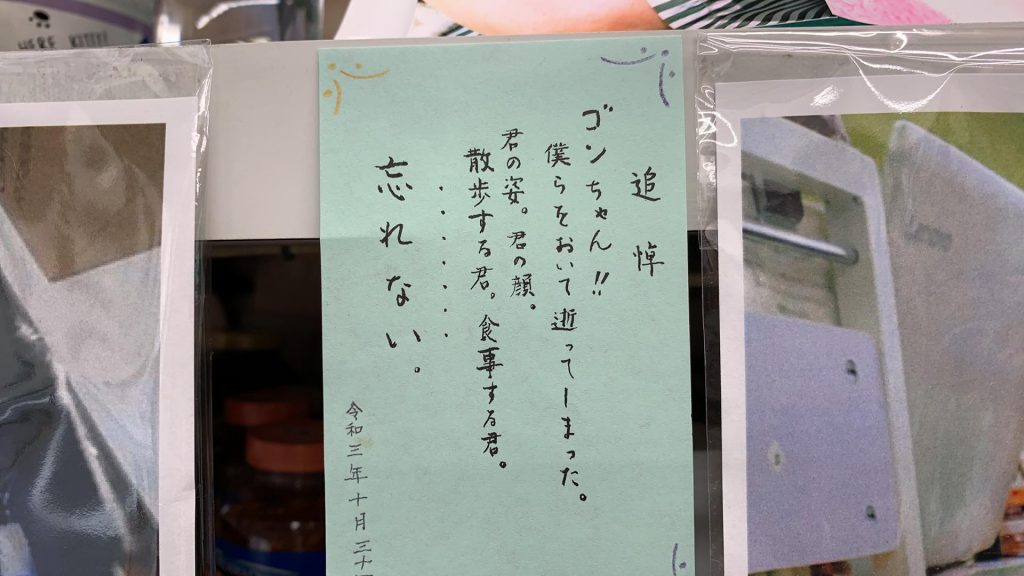 追悼
ゴンちゃん!!
僕らをおいて逝ってしまった。
君の姿。君の顔。
散歩する君。食事する君。
・・・・・・・
忘れない。
令和三年十月三十
HERE KITTY!